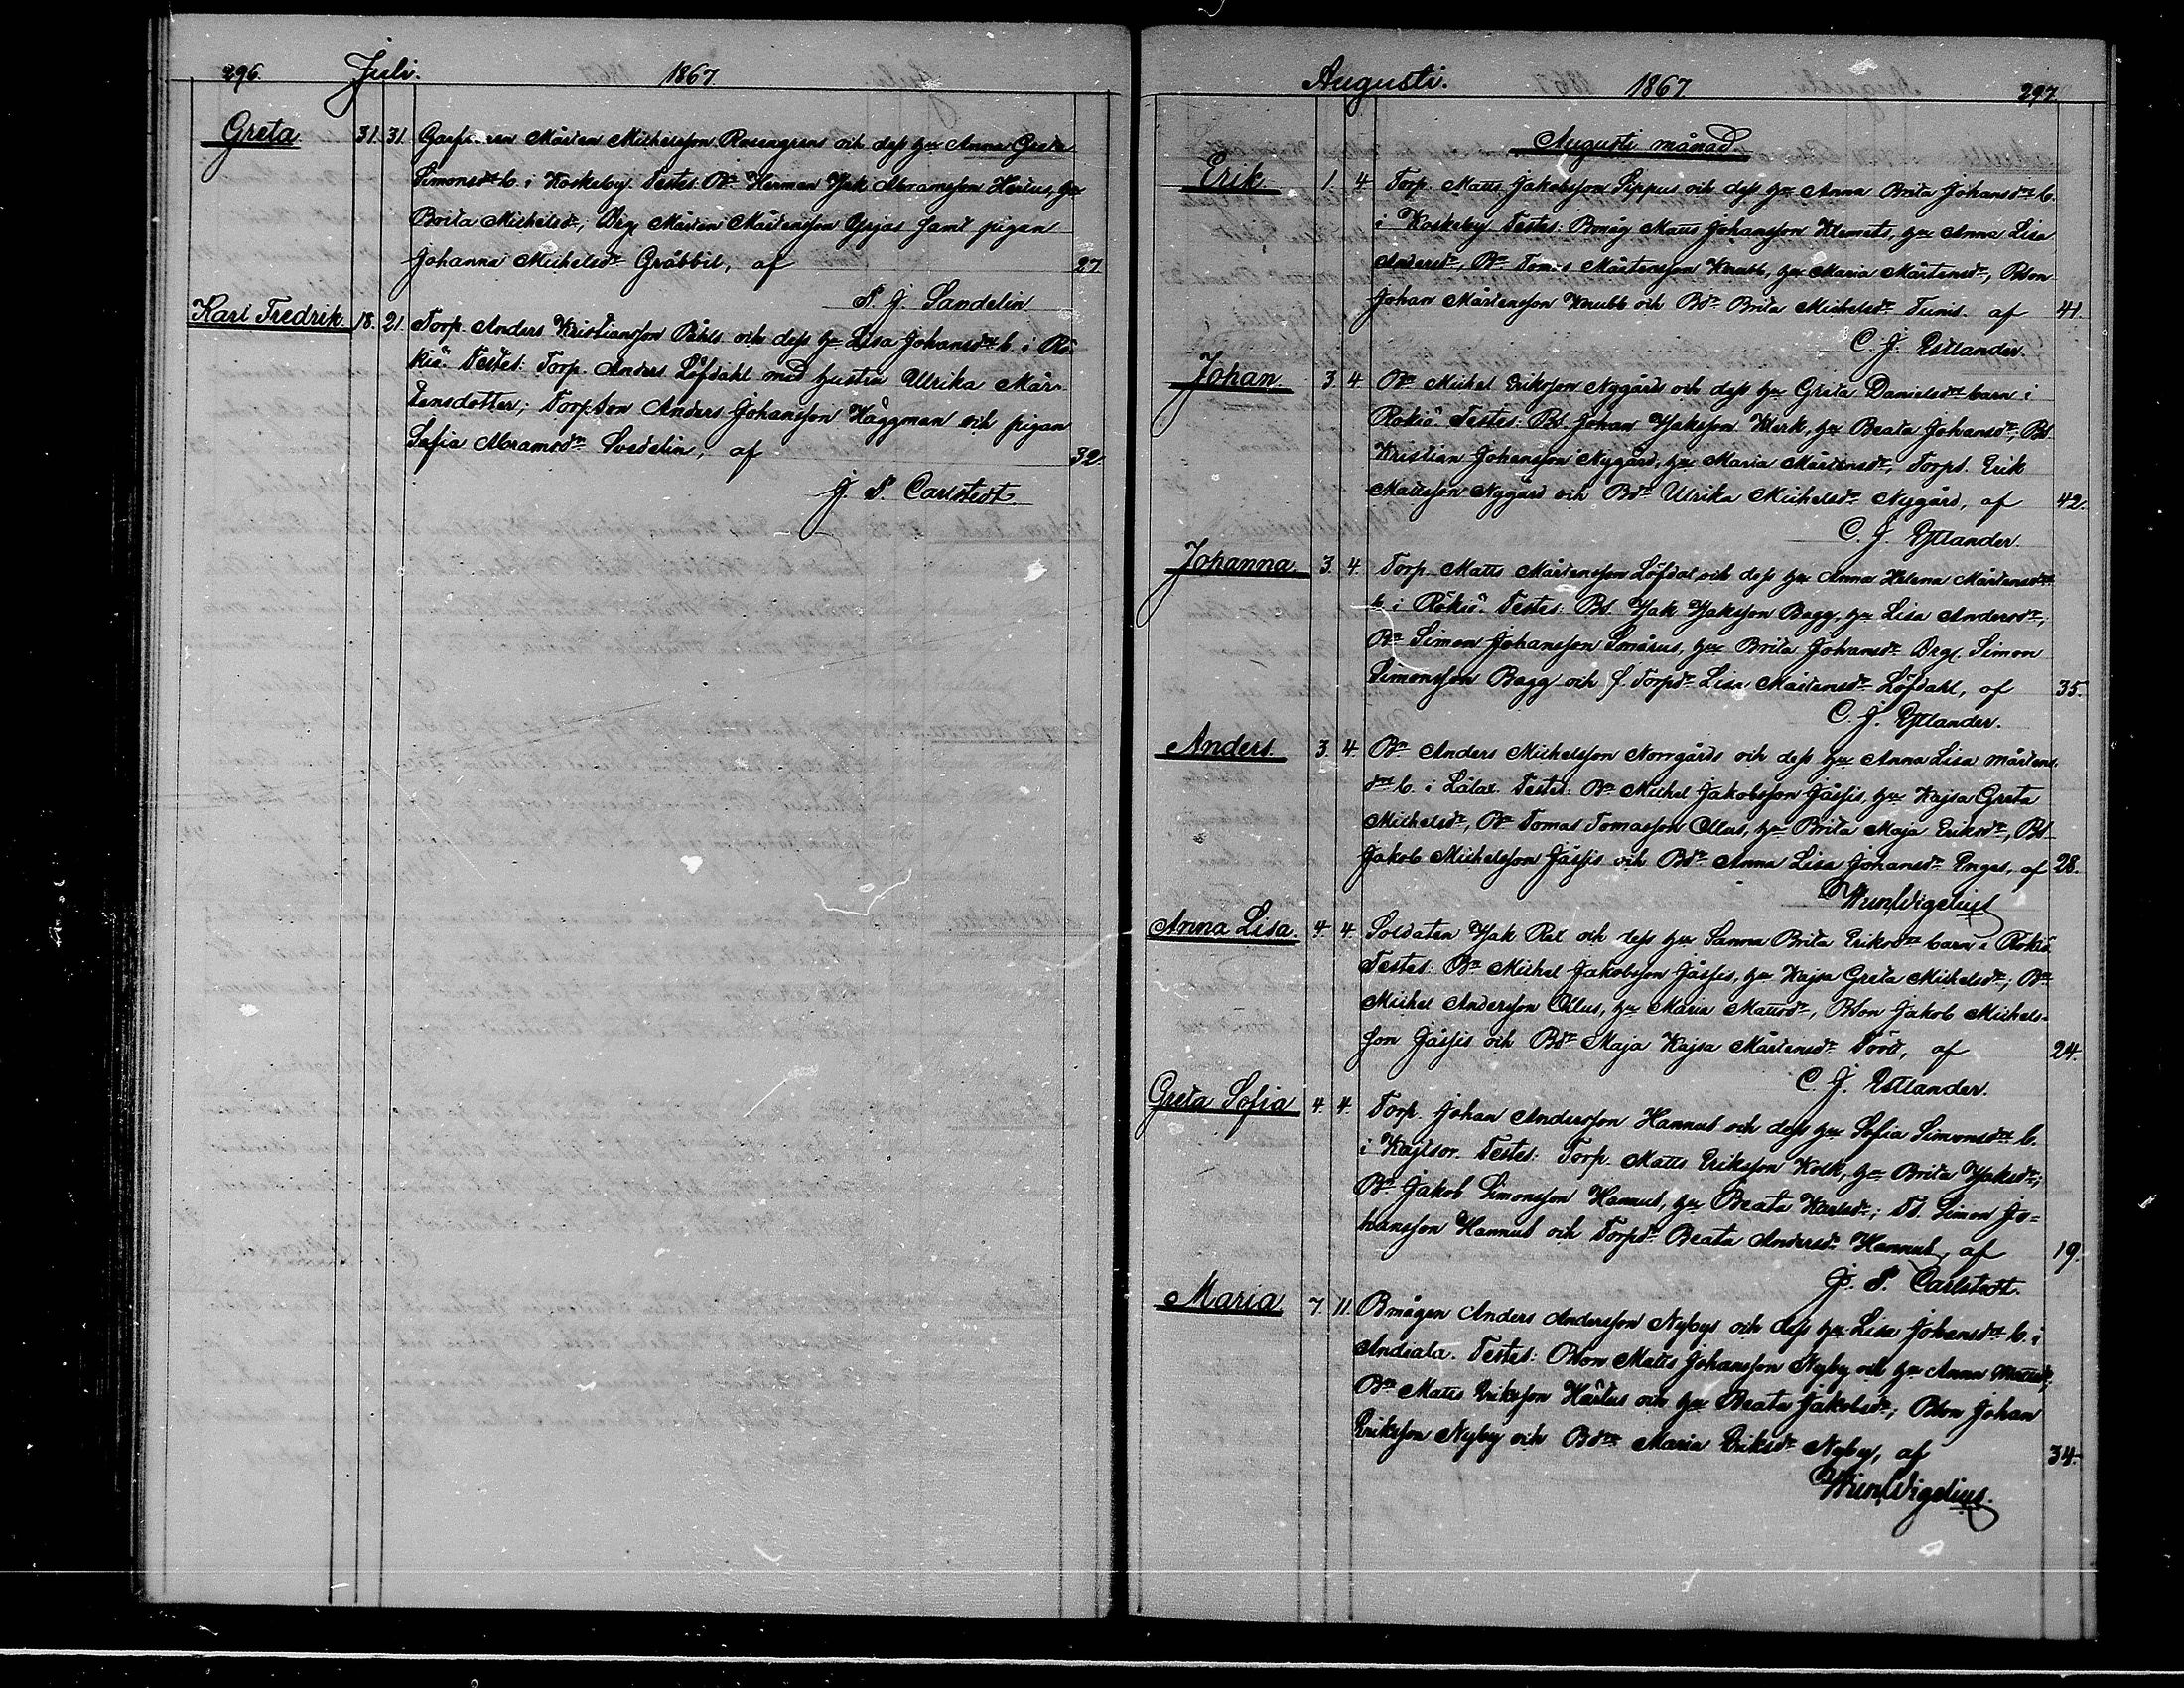 296. Juli. 1867.
Greta 31. 31. Mårten Michelsson Rosengrens och dess hu Anna Greta
Simonsdrs b. i Koskeby. Testes: Bn Herman Jak Abramsson Hertus, hu
Brita Michelsdr, Drg. Mårten Mårtensson Yrjas samt pigan
Johanna Michelsdr Gräbbil, af 27
P. J. Sandelin
Karl Fredrik 18. 21. Torp. Anders Kristiansson Påhls och dess hu Lisa Johansdrs b. i Rö-
kiö. Testes: Torp. Anders Löfdahl med hustru Ulrika Mår-
tensdotter; Torp.son Anders Johansson Häggman och pigan
Sofia Abramsdr Svedelin, af 32.
J. P. Carlstedt.
Augusti. 1867. 297.
Augusti månad
Erik 1. 4 Torp. Matts Jakobsson Sippus och dess hu Anna Brita Johansdrs b.
i Koskeby Testes: Bmåg Matts Johansson Klemets, hu Anna Lisa
Andersdr, Bn Tomas Mårtensson Knubb, hu Maria Mårtensdr, Bson
Johan Mårtensson Knubb och Bdr Brita Michelsdr Tunis. af 41.
C. J. Estlander.
Johan. 3. 4 Bn Michel Eriksson Nygårds och dess hu Greta Danielsdrs barn i
Rökiö. Testes: Bd. Johan Jaksson Klerk, hu Beata Johansdr, Bd
Kristian Johansson Nygård, hu Maria Mårtensdr, Torps. Erik
Mattsson Nygård och Bdr Ulrika Michelsdr Nygård, af 42.
C. J. Estlander.
Johanna. 3. 4. Torp. Matts Mårtensson Löfdal och dess hu Anna Helena Mårtensdrs
b. i Rökiö. Testes: Bd. Jak Jaksson Bagg, hu Lisa Andersdr,
Bn Simon Johansson Smärus, hu Brita Johansdr Drg. Simon
Simonsson Bagg och f. Torpdr Lisa Mårtensdr Löfdahl, af 35.
C. J. Estlander.
Anders. 3 4 Bn Anders Michelsson Norrgårds och dess hu Anna Lisa Mårtens-
drs b. i Lålax. Testes: Bn Michel Jakobsson Jåssis, hu Kajsa Greta
Michelsdr, Bn Tomas Tomasson Ollus, hu Brita Maja Eriksdr, Bd
Jakob Michelsson Jåssis och Bdr Anna Lisa Johansdr Enges, af 28.
Wigelius
Anna Lisa. 4. 4. Soldaten Jak Ral och dess hu Sanna Brita Eriksdrs barn i Rökiö
Testes: Bn Michel Jakobsson Jåssis, hu Kajsa Greta Michelsdr, Bn
Michel Andersson Ollus, hu Maria Mattsdr, Bson Jakob Michels-
son Jåssis och Bdr Maja Kajsa Mårtensdr Törd, af 24.
C. J. Estlander.
Greta Sofia 4. 4. Torp. Johan Andersson Hannus och dess hu Sofia Simonsdrs b.
i Kajtsor. Testes: Torp. Matts Eriksson Kolk, hu Brita Jaksdr;
Bn Jakob Simonsson Hannus, hu Beata Karlsdr; Td. Simon Jo=
hansson Hannus och Torpdr Beata Andersdr Hannus, af 19.
J. P. Carlstedt.
Maria 7. 11. Bmågen Anders Andersson Nybys och dess hu Lisa Johansdrs b. i
Andiala. Testes: Bson Matts Johansson Nyby och hu Anna Mattsdr;
Bn Matts Eriksson Härtus och hu Beata Jakobsdr; Bson Johan
Eriksson Nyby och Bdr Maria Eriksdr Nyby, af 34.
Wigelius.